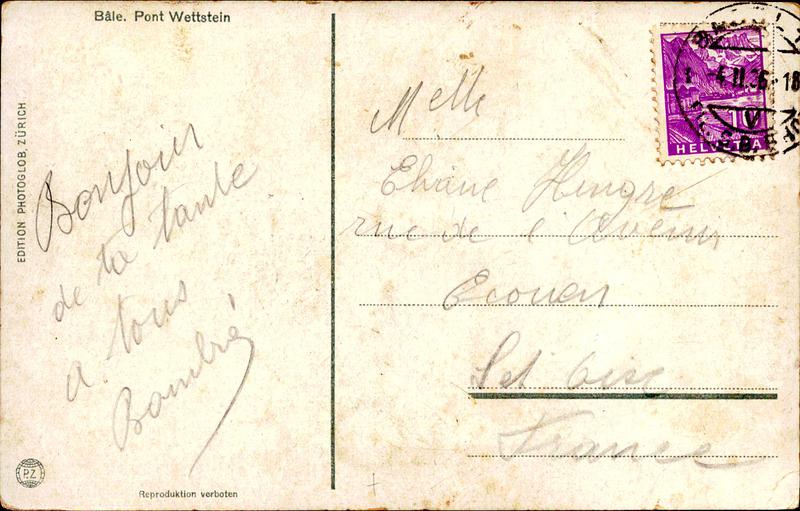 Bâle. Pont Wettstein
EDITION PHOTOGLOB, ZÜRICH
Bonjour
de ta tante
a tous
PZ
Reproduktion verboten
HELVETIA
Melle
Eliane Hingre
rue de l'Avenir
Ecouen
Set Oise
France